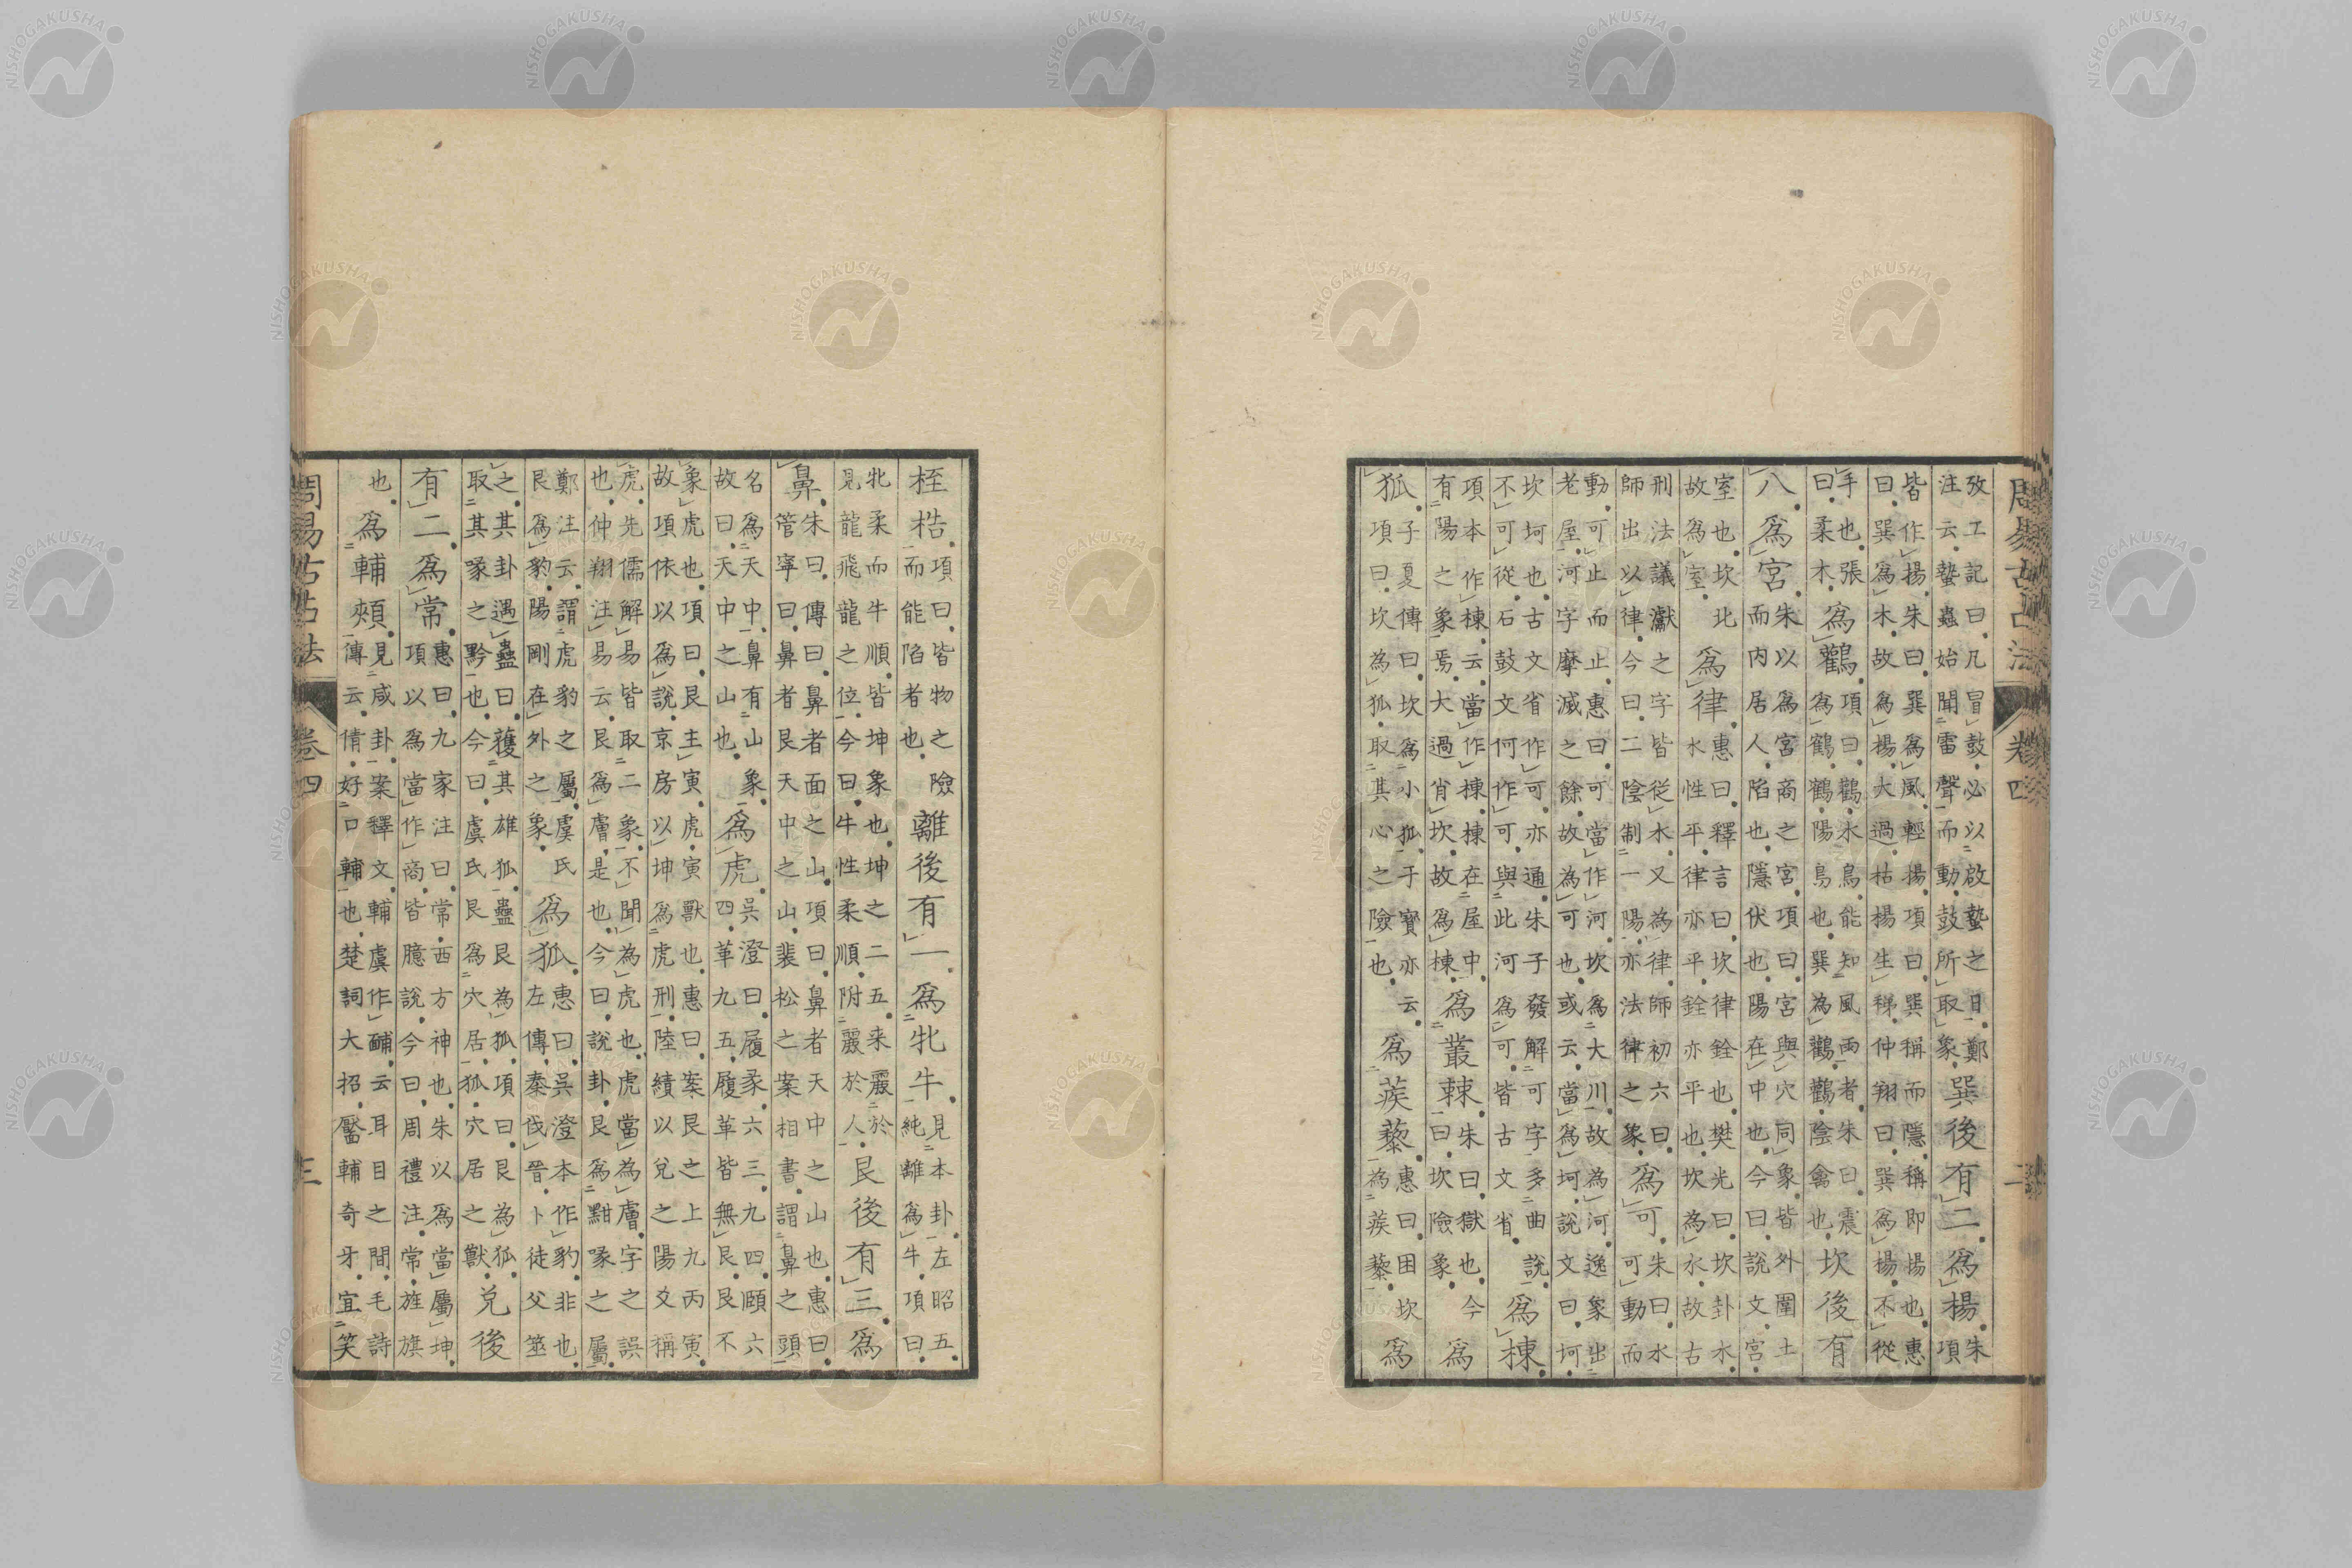 周易古占法 卷四 二
攷工記曰凡冒鼓必以啟蟄之日鄭
注云蟄蟲始聞雷聲而動鼓所取象
巽後有二爲楊
朱
項
皆作揚朱曰巽爲風輕揚項曰巽稱而隱稱即揚也惠
曰巽爲木故爲楊大過枯楊生稊仲翔曰巽爲楊不從
手也張
曰柔木
爲鸛
項曰鸛水鳥能知風雨者朱曰震
爲鶴鶴陽鳥也巽為鸛鸛陰禽也
坎後有
八爲宮
朱以為宮商之宮項曰宮與穴同象皆外圍土
而内居人陷也隱伏也陽在中也今曰說文宮
室也坎北
故為室
爲律
惠曰釋言曰坎律銓也樊光曰坎卦水
水性平律亦平銓亦平也坎為水故古
刑法議讞之字皆從水又為律師初六曰
師出以律今曰二陰制一陽亦法律之象
爲可
朱曰水
可動而
動可止而止惠曰可當作河坎為大川故為河逸象出
老屋河字摩滅之餘故為可也或云當為坷說文曰坷
坎坷也古文省作可亦通朱子發解可字多曲說
不可從石鼓文何作可與此河為可皆古文省
爲棟
項本作棟云當作棟棟在屋中
有陽之象焉大過肖坎故為棟
爲叢棘
朱曰獄也今
曰坎險象
爲
狐
子夏傳曰坎為小狐干寶亦云
項曰坎為狐取其心之險也
爲蒺藜
惠曰困坎
為蒺藜
爲
桎梏
項曰皆物之險
而能陷者也
離後有一爲牝牛
見本卦左昭五
純離為牛項曰
牝柔而牛順皆坤象也坤之二五来麗於
見龍飛龍之位今曰牛性柔順附麗於人
艮後有三爲
鼻
朱曰傳曰鼻者面之山項曰鼻者天中之山也惠曰
管寧曰鼻者艮天中之山裴松之案相書謂鼻之頭
名為天中鼻有山象
故曰天中之山也
爲虎
吳澄曰履彖六三九四頤六
四革九五履革皆無艮艮不
象虎也項曰艮主寅虎寅獸也惠曰案艮之上九丙寅
故項依以為說京房以坤為虎刑陸績以兌之陽爻稱
虎先儒解易皆取二象不聞為虎也虎當為膚字之誤
也仲翔注易云艮為膚是也今曰說卦艮為黚喙之屬
鄭注云謂虎豹之屬虞氏
艮為豹陽剛在外之象
爲狐
惠曰吳澄本作豹非也
左傳秦伐晉卜徒父筮
之其卦遇蠱曰獲其雄狐蠱艮為狐項曰艮為狐
取其喙之黔也今曰虞氏艮為穴居狐穴居之獸
兌後
有二爲常
惠曰九家注曰常西方神也朱以為當屬坤
項以為當作商皆臆說今曰周禮注常旌旗
也
爲輔頰
見咸卦案釋文輔虞作䩉云耳目之間毛詩
傳云倩好口輔也楚詞大招靨輔奇牙宜笑
周易古占法 卷四 三